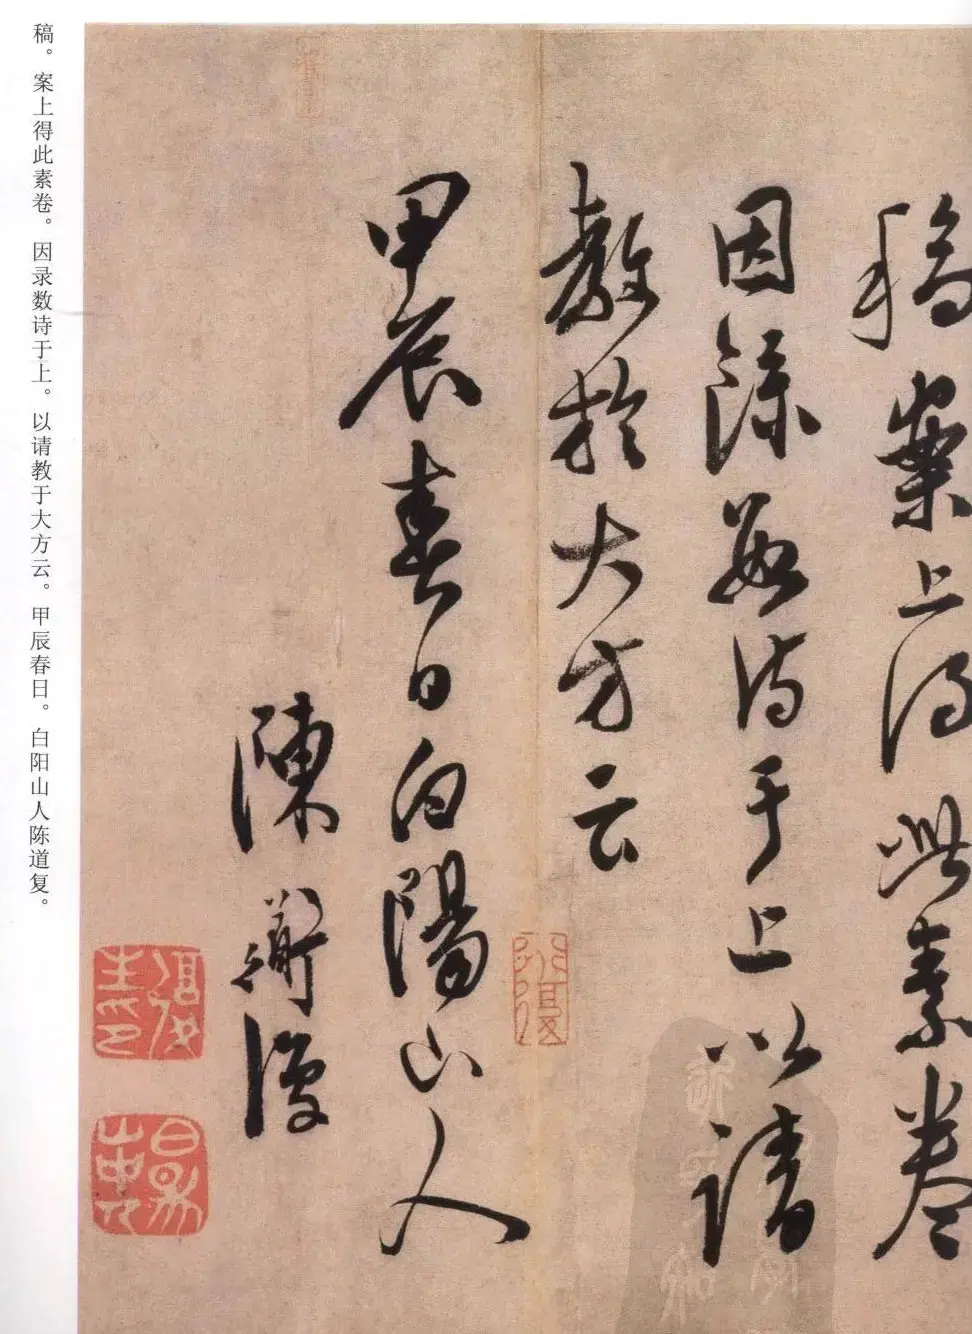 稿案上得此素卷
因録數詩于上以請
教於大方云
甲辰春日白陽山人
陳道復
稿。案上得此素卷。因录数诗于上。以请教于大方云。甲辰春日。白阳山人陈道复。